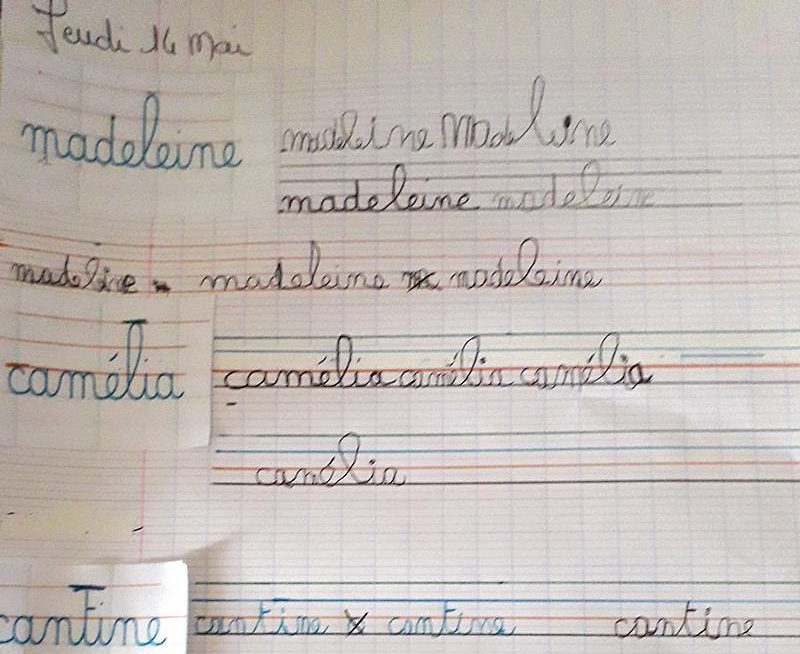 Jeudi 14 Mai
madeleine madeleine Madeleine
madeleine madeleine
madeleine madeleine madeleine
camélia camélia camélia camélia
camélia
cantine cantine cantine cantine